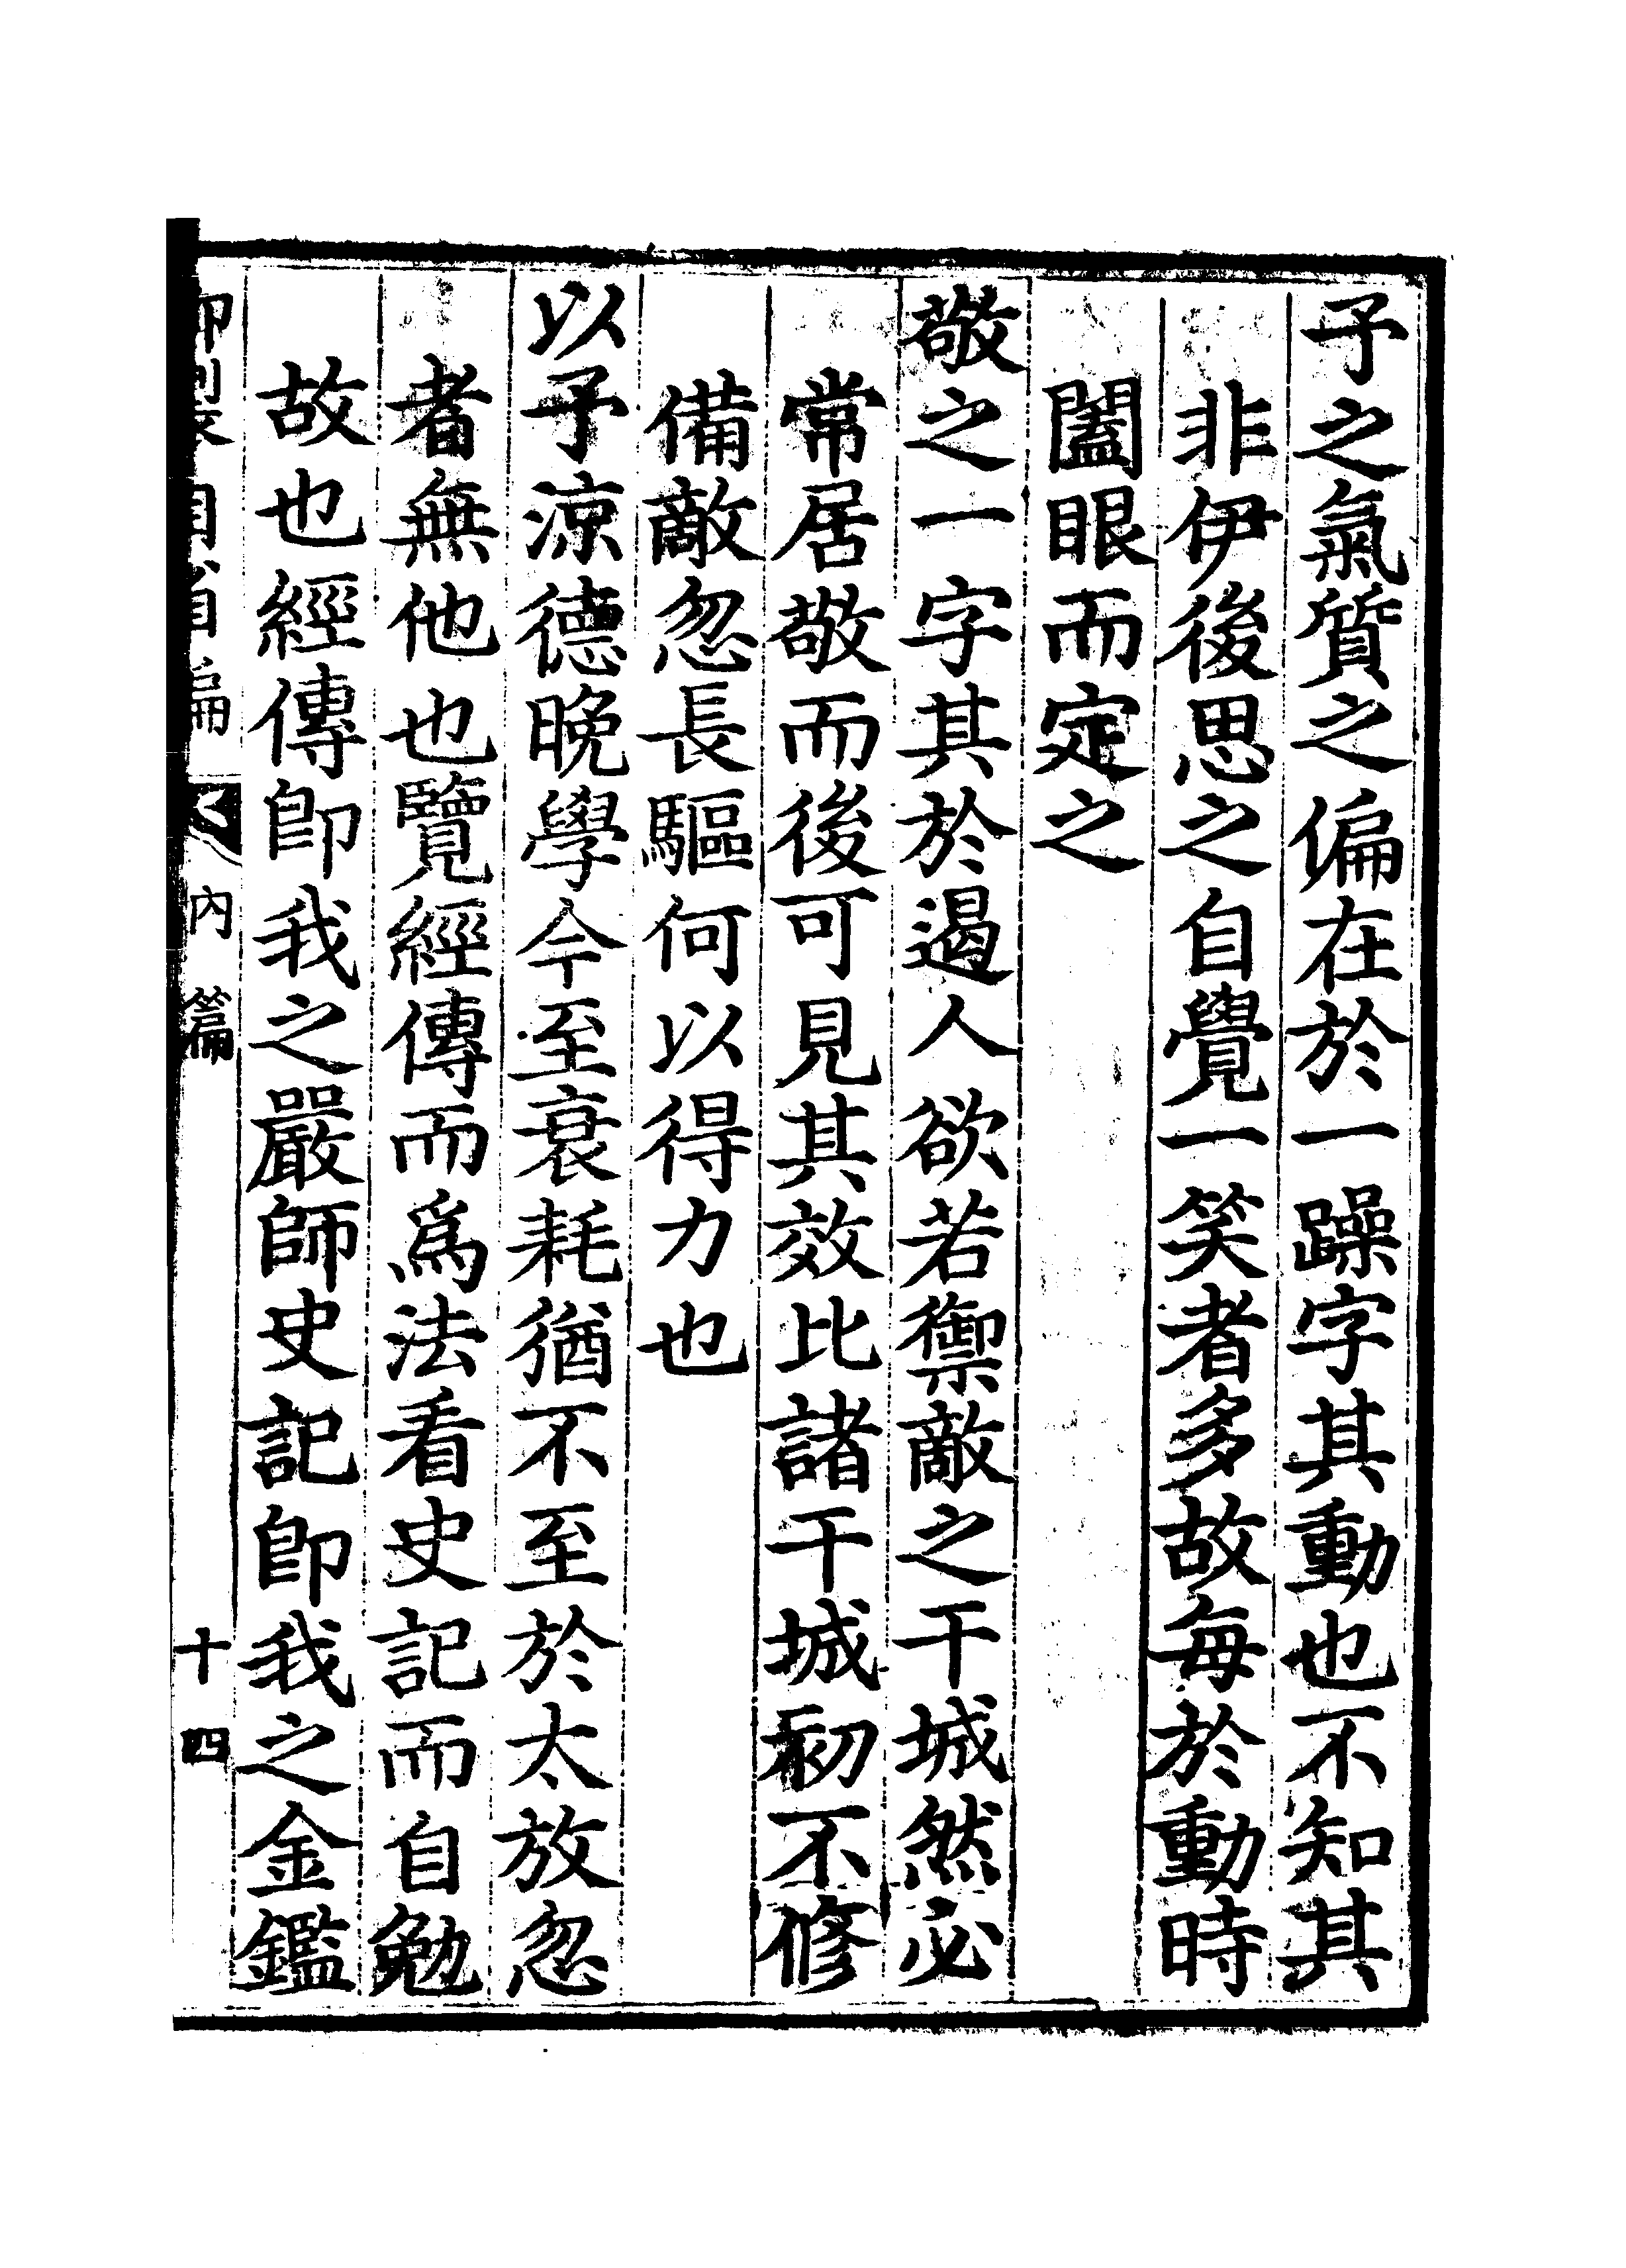 予之氣質之偏在於一躁字其動也不知其
非伊後思之自覺一笑者多故每於動時
闔眼而定之
敬之一字其於遏人欲若禦敵之干城然必
常居敬而後可見其效比諸干城初不修
備敵忽長驅何以得力也
以予涼德晚學今至衰耗猶不至於太放忽
者無他也覽經傳而爲法看史記而自勉
故也經傳卽我之嚴師史記卽我之金鑑
御製自省編 內篇 十四